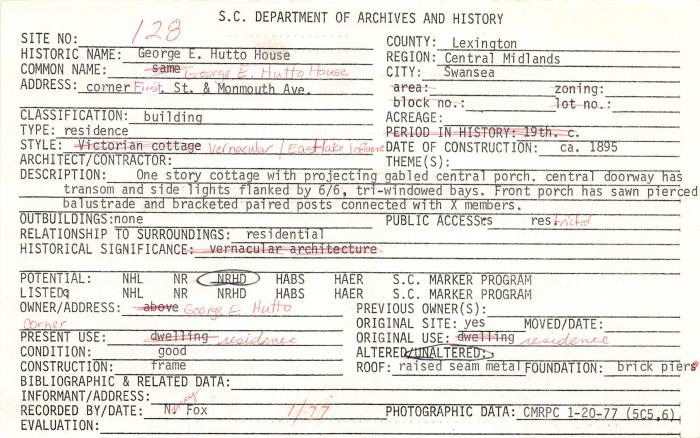 S.C. DEPARTMENT OF ARCHIVES AND HISTORY
SITE NO: 128
HISTORIC NAME: George E. Hutto House
COMMON NAME: same George E. Hutto House
ADDRESS: corner First St. & Monmouth Ave.
COUNTY: Lexington
REGION: Central Midlands
CITY: Swansea
area: zoning:
block no.: lot no.:
CLASSIFICATION: building
TYPE: residence
STYLE: Victorian cottage Vernacular / Eastlake Influence
ARCHITECT/CONTRACTOR:
ACREAGE:
PERIOD IN HISTORY: 19th. c.
DATE OF CONSTRUCTION: ca. 1895
THEME(S):
DESCRIPTION: One story cottage with projecting gabled central porch. central doorway has
transom and side lights flanked by 6/6, tri-windowed bays. Front porch has sawn pierced
balustrade and bracketed paired posts connected with X members.
OUTBUILDINGS:none PUBLIC ACCESS: restricted
RELATIONSHIP TO SURROUNDINGS: residential
HISTORICAL SIGNIFICANCE: vernacular architecture
POTENTIAL: NHL NR NRHD HABS HAER S.C. MARKER PROGRAM
LISTED: NHL NR NRHD HABS HAER S.C. MARKER PROGRAM
OWNER/ADDRESS: above George E. Hutto
corner
PRESENT USE: dwelling residence
CONDITION: good
CONSTRUCTION: frame
PREVIOUS OWNER(S):
ORIGINAL SITE: yes MOVED/DATE:
ORIGINAL USE: dwelling residence
ALTERED/UNALTERED:
ROOF: raised seam metal FOUNDATION: brick piers
BIBLIOGRAPHIC & RELATED DATA:
INFORMANT/ADDRESS:
RECORDED BY/DATE: Nancy Fox 1/77 PHOTOGRAPHIC DATA: CMRPC 1-20-77 (5C5,6)
EVALUATION: